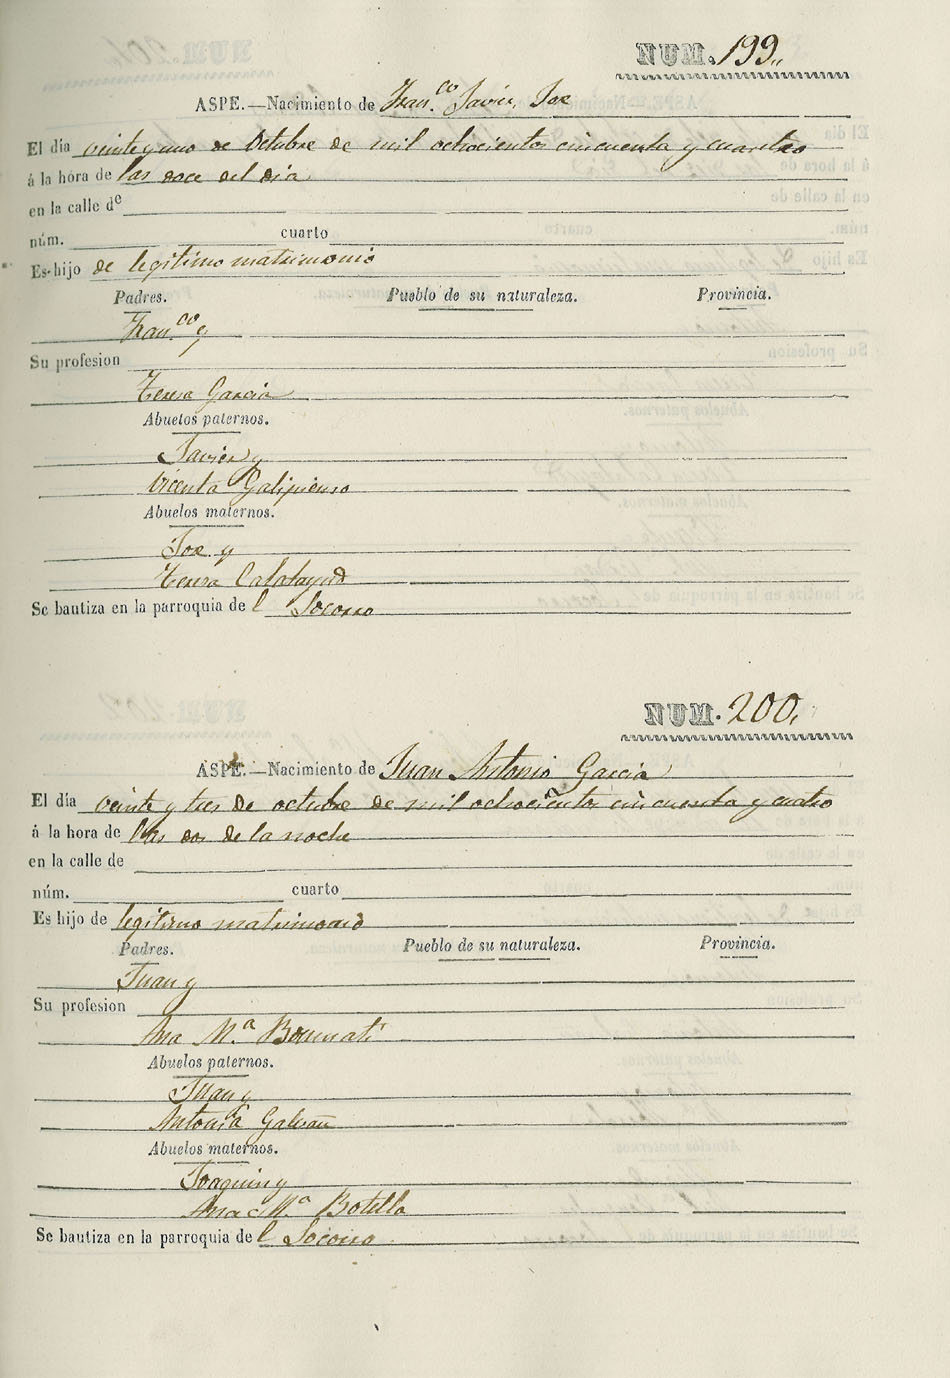 NUM. 199.
ASPE.—Nacimiento de Fran.co Javier,
El día veinte y uno de Octubre de mil ochocientos cincuenta y cuatro
á la hora de las doce del dia
en la calle de
núm. cuarto
Es hijo de legitimo matrimonio
Padres. Pueblo de su naturaleza. Provincia.
Fran.co y
Su profesion
Teresa Garcia
Abuelos paternos.
Javier y
Vicenta Galipienso
Abuelos maternos.
Jose y
Teresa Calatayud
Se bautiza en la parroquia de l Socorro
NUM. 200.
ASPE.—Nacimiento de Juan Antonio Garcia
El día veinte y tres de octubre de mil ochocientos cincuenta y cuatro
á la hora de las dos de la noche
en la calle de
núm. cuarto
Es hijo de legitimo matrimonio
Padres. Pueblo de su naturaleza. Provincia.
Juan y
Su profesion
Ana M.a Bonmati
Abuelos paternos.
Juan y
Antonia Galvañ
Abuelos maternos.
Joaquin y
Ana M.a Botella
Se bautiza en la parroquia de l Socorro